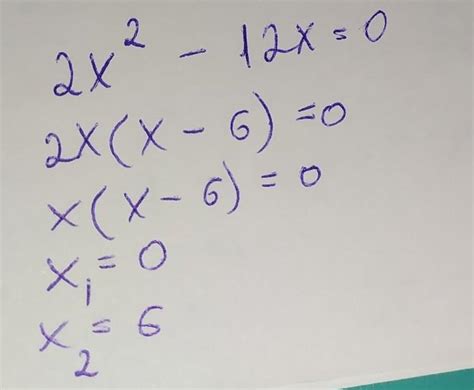 2x² - 12x = 0
2x(x - 6) = 0
x(x - 6) = 0
x₁ = 0
x₂ = 6